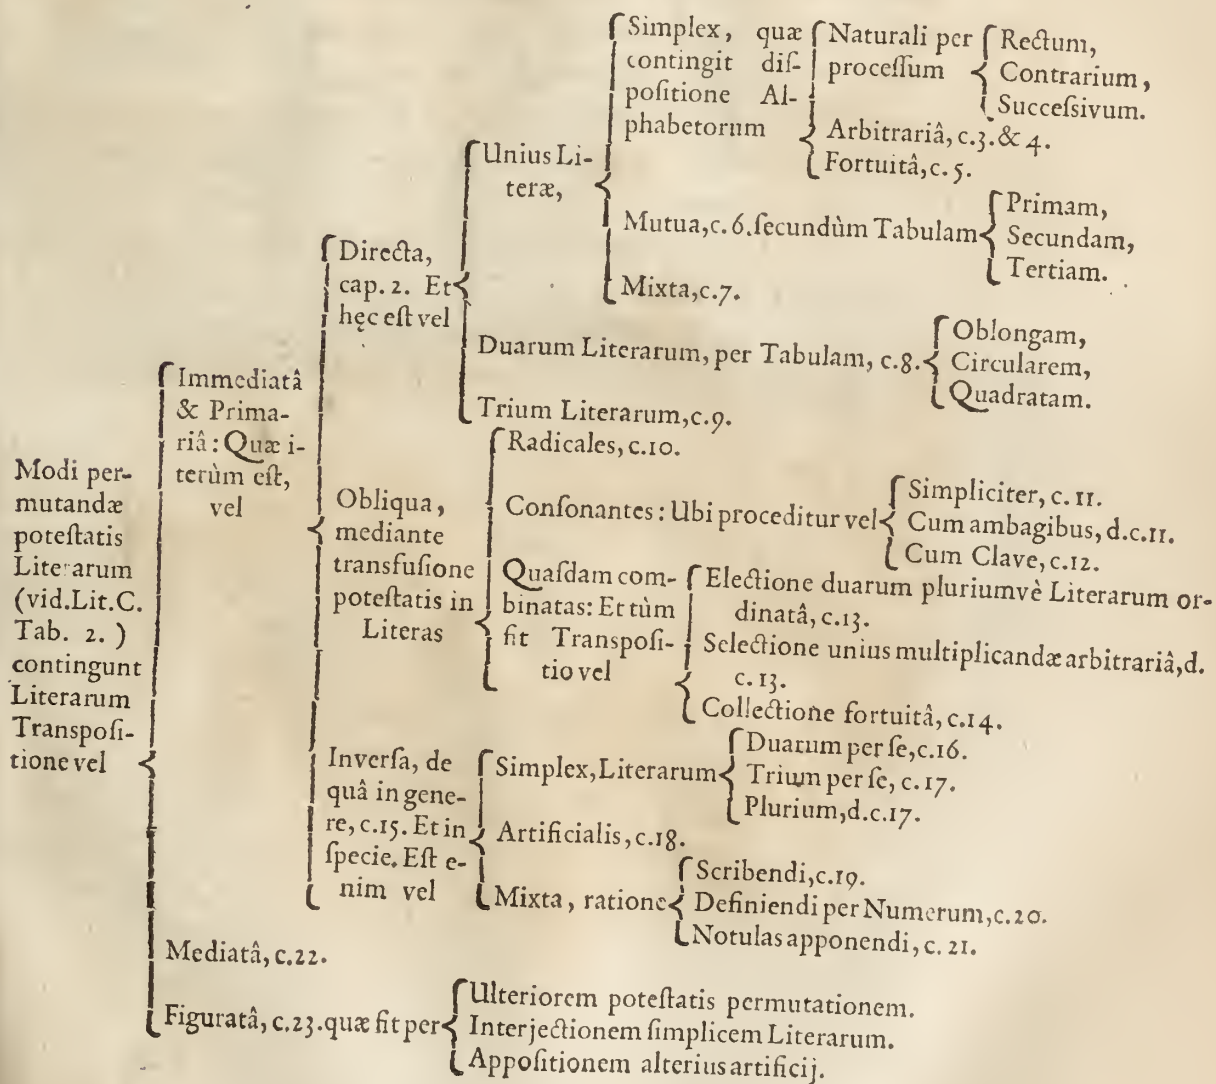 Modi per-
mutandæ
poteſtatis
Literarum
(vid.Lit.C.
Tab. 2. )
contingunt
Literarum
Tranſpoſi-
tione vel
Immediatâ
& Prima-
riâ: Quæ i-
terùm eſt,
vel
Directa,
cap. 2. Et
hęc eſt vel
Unius Li-
teræ,
Simplex, quæ
contingit diſ-
poſitione Al-
phabetorum
Naturali per
proceſſum
Rectum,
Contrarium,
Succeſsivum.
Arbitrariâ, c.3. & 4.
Fortuitâ, c. 5.
Mutua, c. 6. ſecundùm Tabulam
Primam,
Secundam,
Tertiam.
Mixta, c.7.
Duarum Literarum, per Tabulam, c.8.
Oblongam,
Circularem,
Quadratam.
Trium Literarum, c.9.
Obliqua,
mediante
transfuſione
poteſtatis in
Literas
Radicales, c.10.
Conſonantes: Ubi proceditur vel
Simpliciter, c. 11.
Cum ambagibus, d.c.11.
Cum Clave, c.12.
Quaſdam com-
binatas: Et tùm
fit Tranſpoſi-
tio vel
Electione duarum pluriumvè Literarum or-
dinatâ, c.13.
Selectione unius multiplicandæ arbitrariâ, d.
c. 13.
Collectione fortuitâ, c.14.
Inverſa, de
quâ in gene-
re, c.15. Et in
ſpecie. Eſt e-
nim vel
Simplex, Literarum
Duarum per ſe, c.16.
Trium per ſe, c. 17.
Plurium, d.c.17.
Artificialis, c.18.
Mixta, ratione
Scribendi, c.19.
Definiendi per Numerum, c.20.
Notulas apponendi, c. 21.
Mediatâ, c.22.
Figuratâ, c.23. quæ fit per
Ulteriorem poteſtatis permutationem.
Interjectionem ſimplicem Literarum.
Appoſitionem alterius artificij.